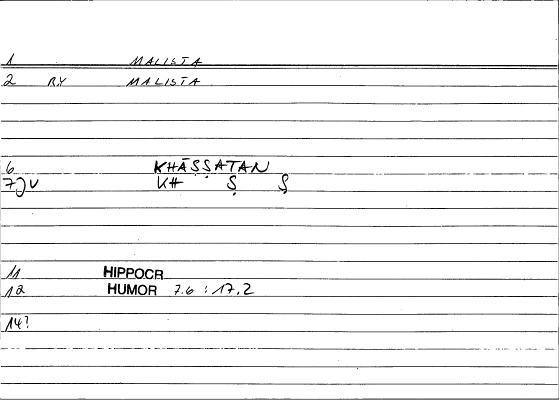 1 MALISTA
2 RY MALISTA
6 KHĀṢṢATAN
7) V KH Ṣ Ṣ
11 HIPPOCR
12 HUMOR 7.6 : 17,2
14?